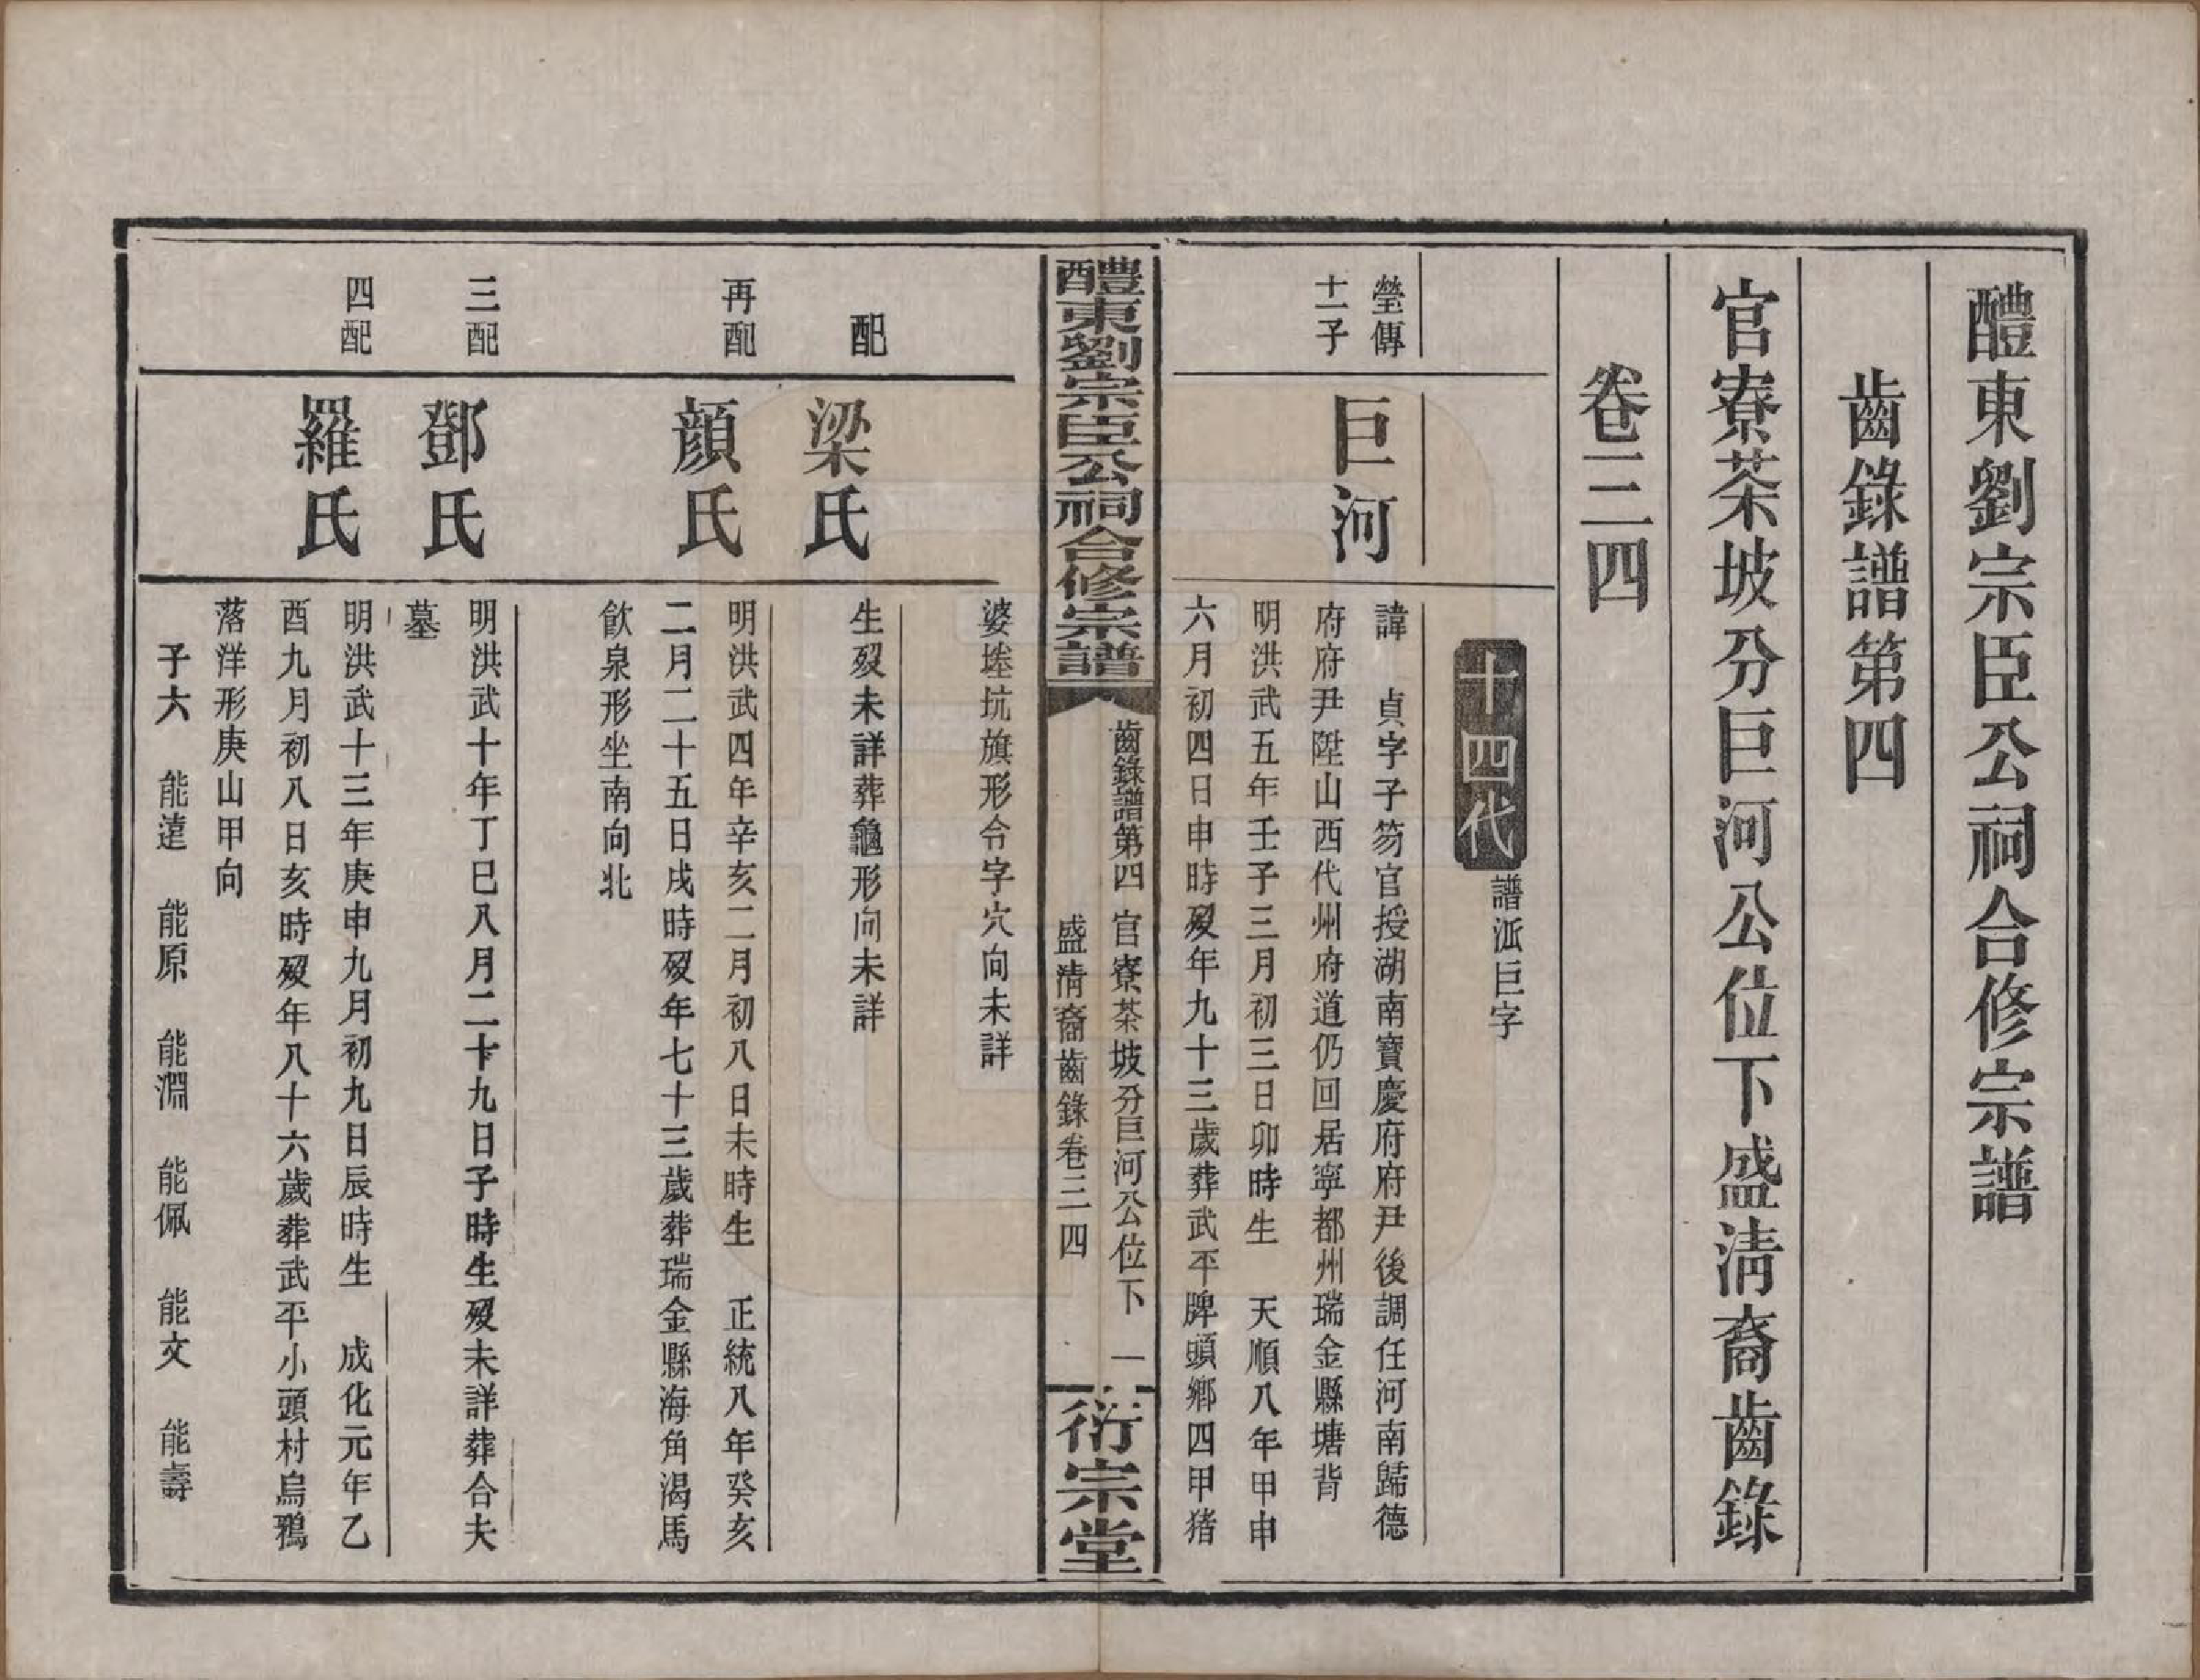 醴東劉宗臣公祠合修宗譜
齒錄譜第四
官寮茶坡分巨河公位下盛淸裔齒錄
卷三四
十四代
譜派巨字
瑩傳
十一子
巨河
諱 貞字子笏官授湖南寶慶府府尹後調任河南歸德
府府尹陞山西代州府道仍回居寧都州瑞金縣塘背
明洪武五年壬子三月初三日卯時生 天順八年甲申
六月初四日申時歿年九十三歲葬武平牌頭鄉四甲猪
醴東劉宗臣公祠合修宗譜
齒錄譜第四 官寮茶坡分巨河公位下
盛淸裔齒錄卷三四
一
衍宗堂
婆㙮坑旗形令字穴向未詳
配
梁氏
生歿未詳葬龜形向未詳
再配
顏氏
明洪武四年辛亥二月初八日未時生 正統八年癸亥
二月二十五日戌時歿年七十三歲葬瑞金縣海角渴馬
飲泉形坐南向北
三配
鄧氏
明洪武十年丁巳八月二十九日子時生歿未詳葬合夫
墓
四配
羅氏
明洪武十三年庚申九月初九日辰時生 成化元年乙
酉九月初八日亥時歿年八十六歲葬武平小頭村烏鴉
落洋形庚山甲向
子六 能遠 能原 能淵 能佩 能文 能壽